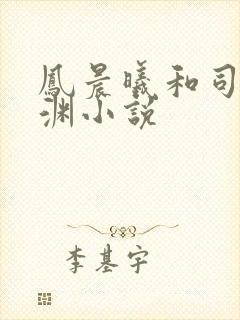 鳳晨曦和司
渊小説
李基宇